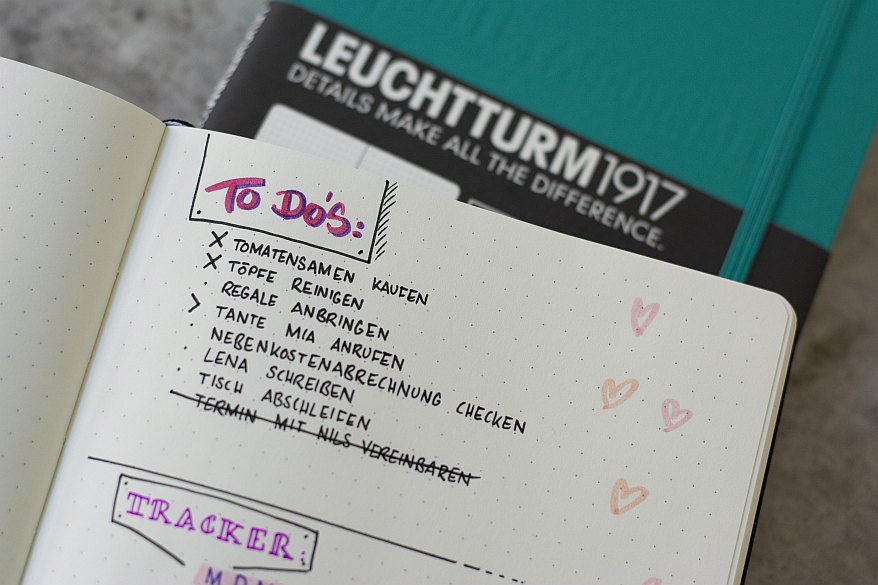 LEUCHTTURM1917
DETAILS MAKE ALL THE DIFFERENCE.
TO DO'S:
X TOMATENSAMEN KAUFEN
X TÖPFE REINIGEN
· REGALE ANBRINGEN
> TANTE MIA ANRUFEN
· NEBENKOSTENABRECHNUNG CHECKEN
· LENA SCHREIBEN
· TISCH ABSCHLEIFEN
TERMIN MIT NILS VEREINBAREN
TRACKER: